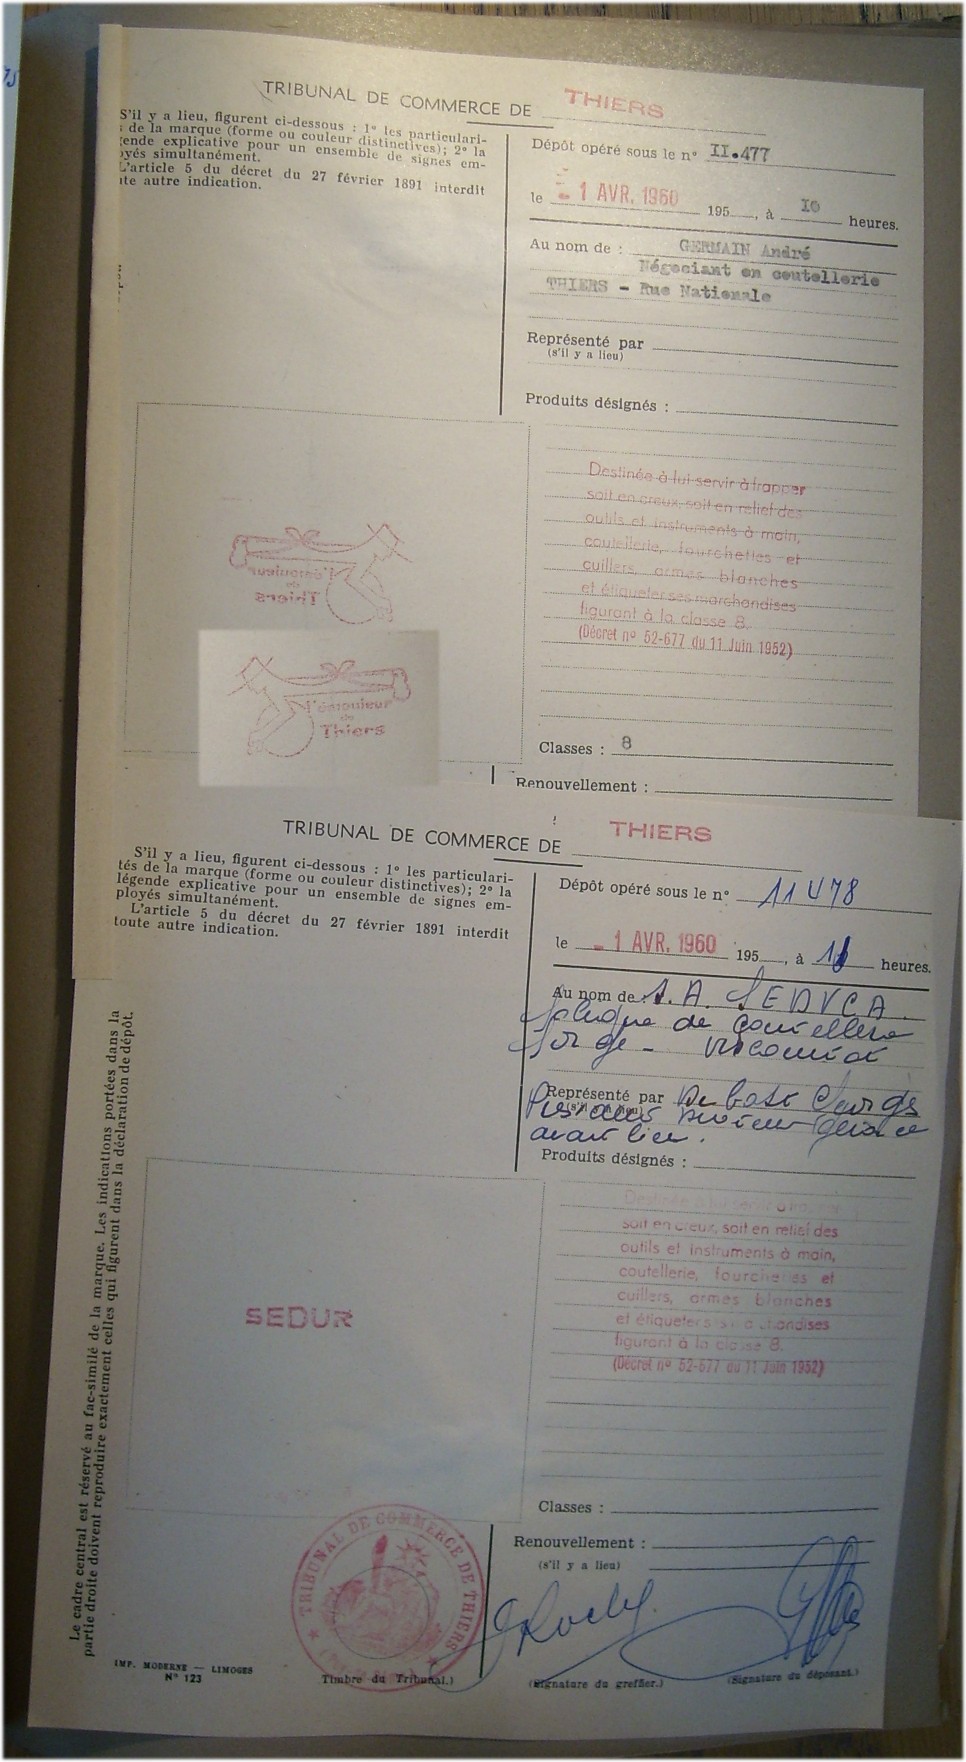 TRIBUNAL DE COMMERCE DE THIERS
S'il y a lieu, figurent ci-dessous : 1º les particulari-
s de la marque (forme ou couleur distinctives); 2º la
gende explicative pour un ensemble de signes em-
oyés simultanément.
L'article 5 du décret du 27 février 1891 interdit
te autre indication.
Dépôt opéré sous le nº II.477
le - 1 AVR. 1960 195 , à I0 heures.
Au nom de : GERMAIN André
Négociant en coutellerie
THIERS - Rue Nationale
Représenté par
(s'il y a lieu)
Produits désignés :
Destinée à lui servir à frapper
soit en creux, soit en relief des
outils et instruments à main,
coutellerie, fourchettes et
cuillers, armes blanches
et étiqueter ses marchandises
figurant à la classe 8.
(Décret nº 52-677 du 11 Juin 1952)
l'émouleur
de
Thiers
l'émouleur
de
Thiers
Classes : 8
Renouvellement :
TRIBUNAL DE COMMERCE DE THIERS
S'il y a lieu, figurent ci-dessous : 1º les particulari-
tés de la marque (forme ou couleur distinctives); 2º la
légende explicative pour un ensemble de signes em-
ployés simultanément.
L'article 5 du décret du 27 février 1891 interdit
toute autre indication.
Dépôt opéré sous le nº 11478
le - 1 AVR. 1960 195 , à heures.
Au nom de : S.A. SEDUCA
de Coutellerie
Représenté par
(s'il y a lieu)
Produits désignés :
Destinée à lui servir à
soit en creux, soit en relief des
outils et instruments à main,
coutellerie, fourchettes et
cuillers, armes blanches
et étiqueter ses marchandises
figurant à la classe 8.
(Décret nº 52-677 du 11 Juin 1952)
SEDUR
Le cadre central est réservé au fac-similé de la marque. Les indications portées dans la
partie droite doivent reproduire exactement celles qui figurent dans la déclaration de dépôt.
Classes :
Renouvellement :
(s'il y a lieu)
TRIBUNAL DE COMMERCE DE THIERS
IMP. MODERNE — LIMOGES
Nº 123
Timbre du Tribunal.)
(Signature du greffier.)
(Signature du déposant.)